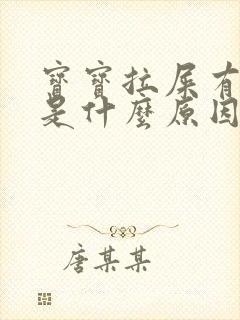 寶寶拉屎有
是什麼原因
唐某某